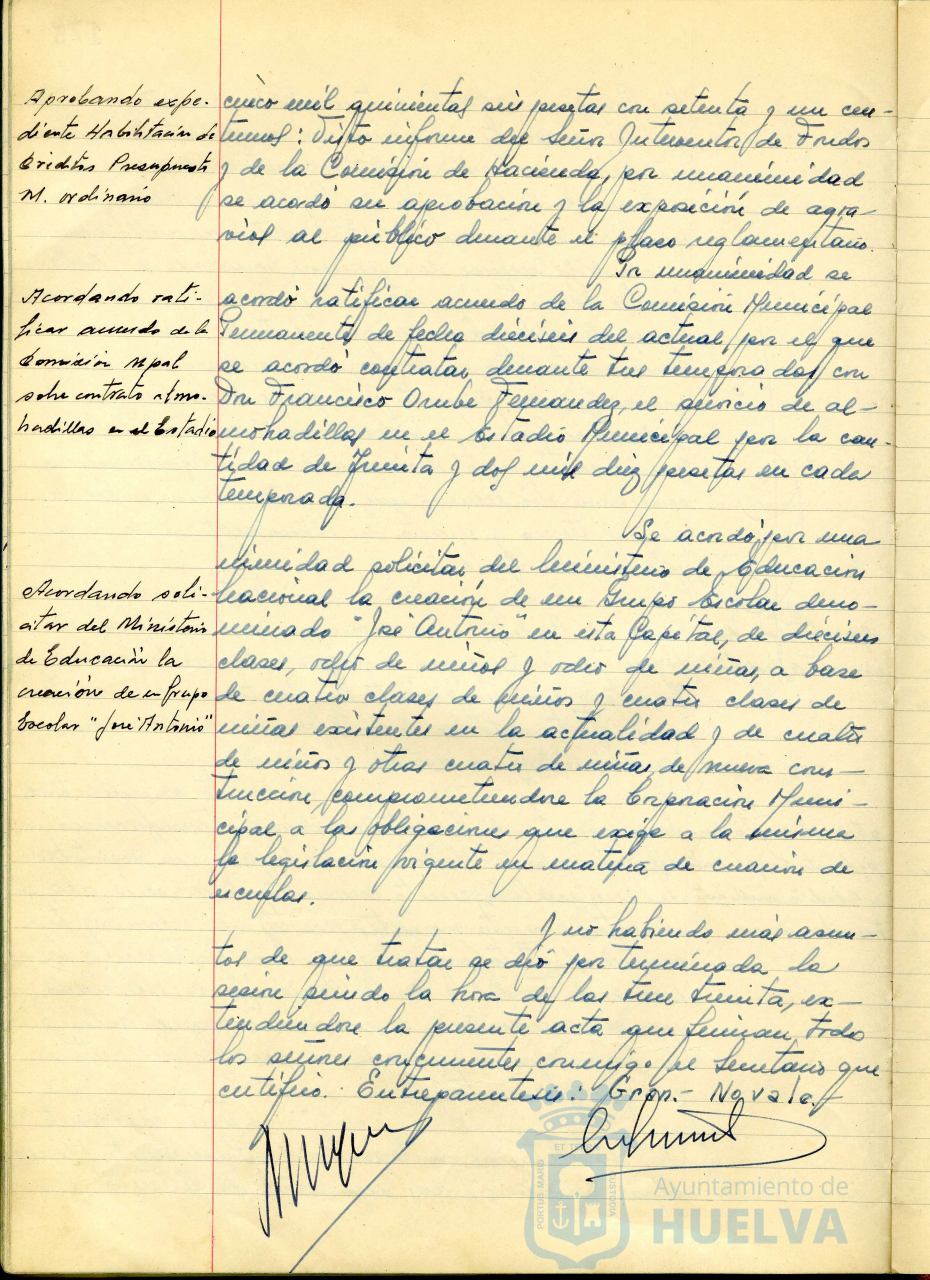 Aprobando expe-
diente Habilitación de
Créditos Presupuesto
M. ordinario
cinco mil quinientas seis pesetas con setenta y un cen-
timos: Visto informe del Señor Interventor de Fondos
y de la Comisión de Hacienda, por unanimidad
se acordó su aprobación y la exposición de agra-
vios al público durante el plazo reglamentario.
Por unanimidad se
Acordando rati-
ficar acuerdo de la
Comisión mpal
sobre contrato almo-
hadillas en el Estadio
acordó ratificar acuerdo de la Comisión Municipal
Permanente de fecha dieciseis del actual, por el que
se acordó contratar durante tres temporadas con
Don Francisco Fernandez, el servicio de al-
mohadillas en el Estadio Municipal por la can-
tidad de Treinta y dos mil diez pesetas en cada
temporada.
Se acordó por una
nimidad solicitar del Ministerio de Educación
Acordando soli-
citar del Ministerio
de Educación la
creación de un Grupo
Escolar "José Antonio"
Nacional la creación de un Grupo Escolar deno-
minado "José Antonio" en esta Capital, de dieciseis
clases, ocho de niños y ocho de niñas, a base
de cuatro clases de niños y cuatro clases de
niñas existentes en la actualidad y de cuatro
de niños y otras cuatro de niñas, de nueva cons-
trucción, comprometiendose la Corporación Muni-
cipal a las obligaciones que exige a la misma
la legislación vigente en materia de creación de
escuelas.
Y no habiendo más asun-
tos de que tratar se dió por terminada la
sesión siendo la hora de las trece treinta, ex-
tendiéndose la presente acta que firman todos
los señores concurrentes conmigo el Secretario que
certifico. Entreparentesis: - No vale.-
ET
PORTUS MARIS
CUSTODIA
Ayuntamiento de
HUELVA